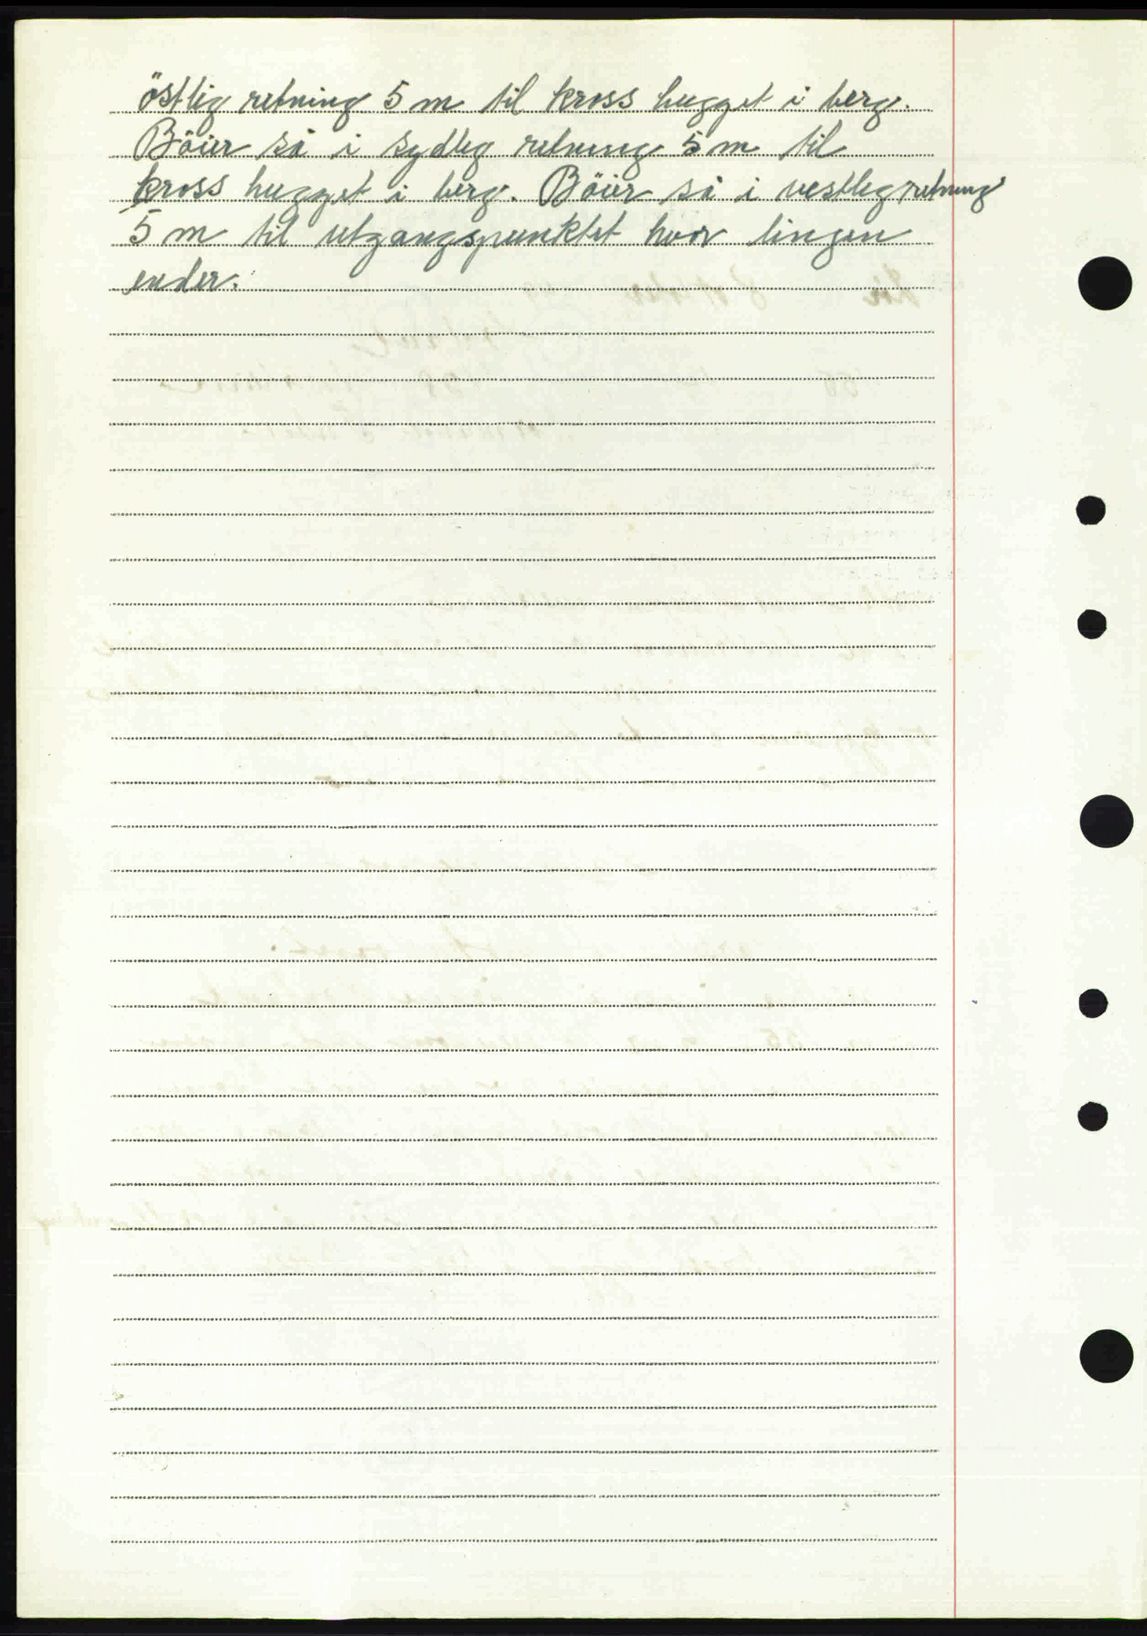 östlig retning 5 m til kross hugget i berg.
Böier så i sydlig retning 5 m til
kross hugget i berg. Böier så i vestlig retning
5 m til utgangspunktet hvor lingen
ender.